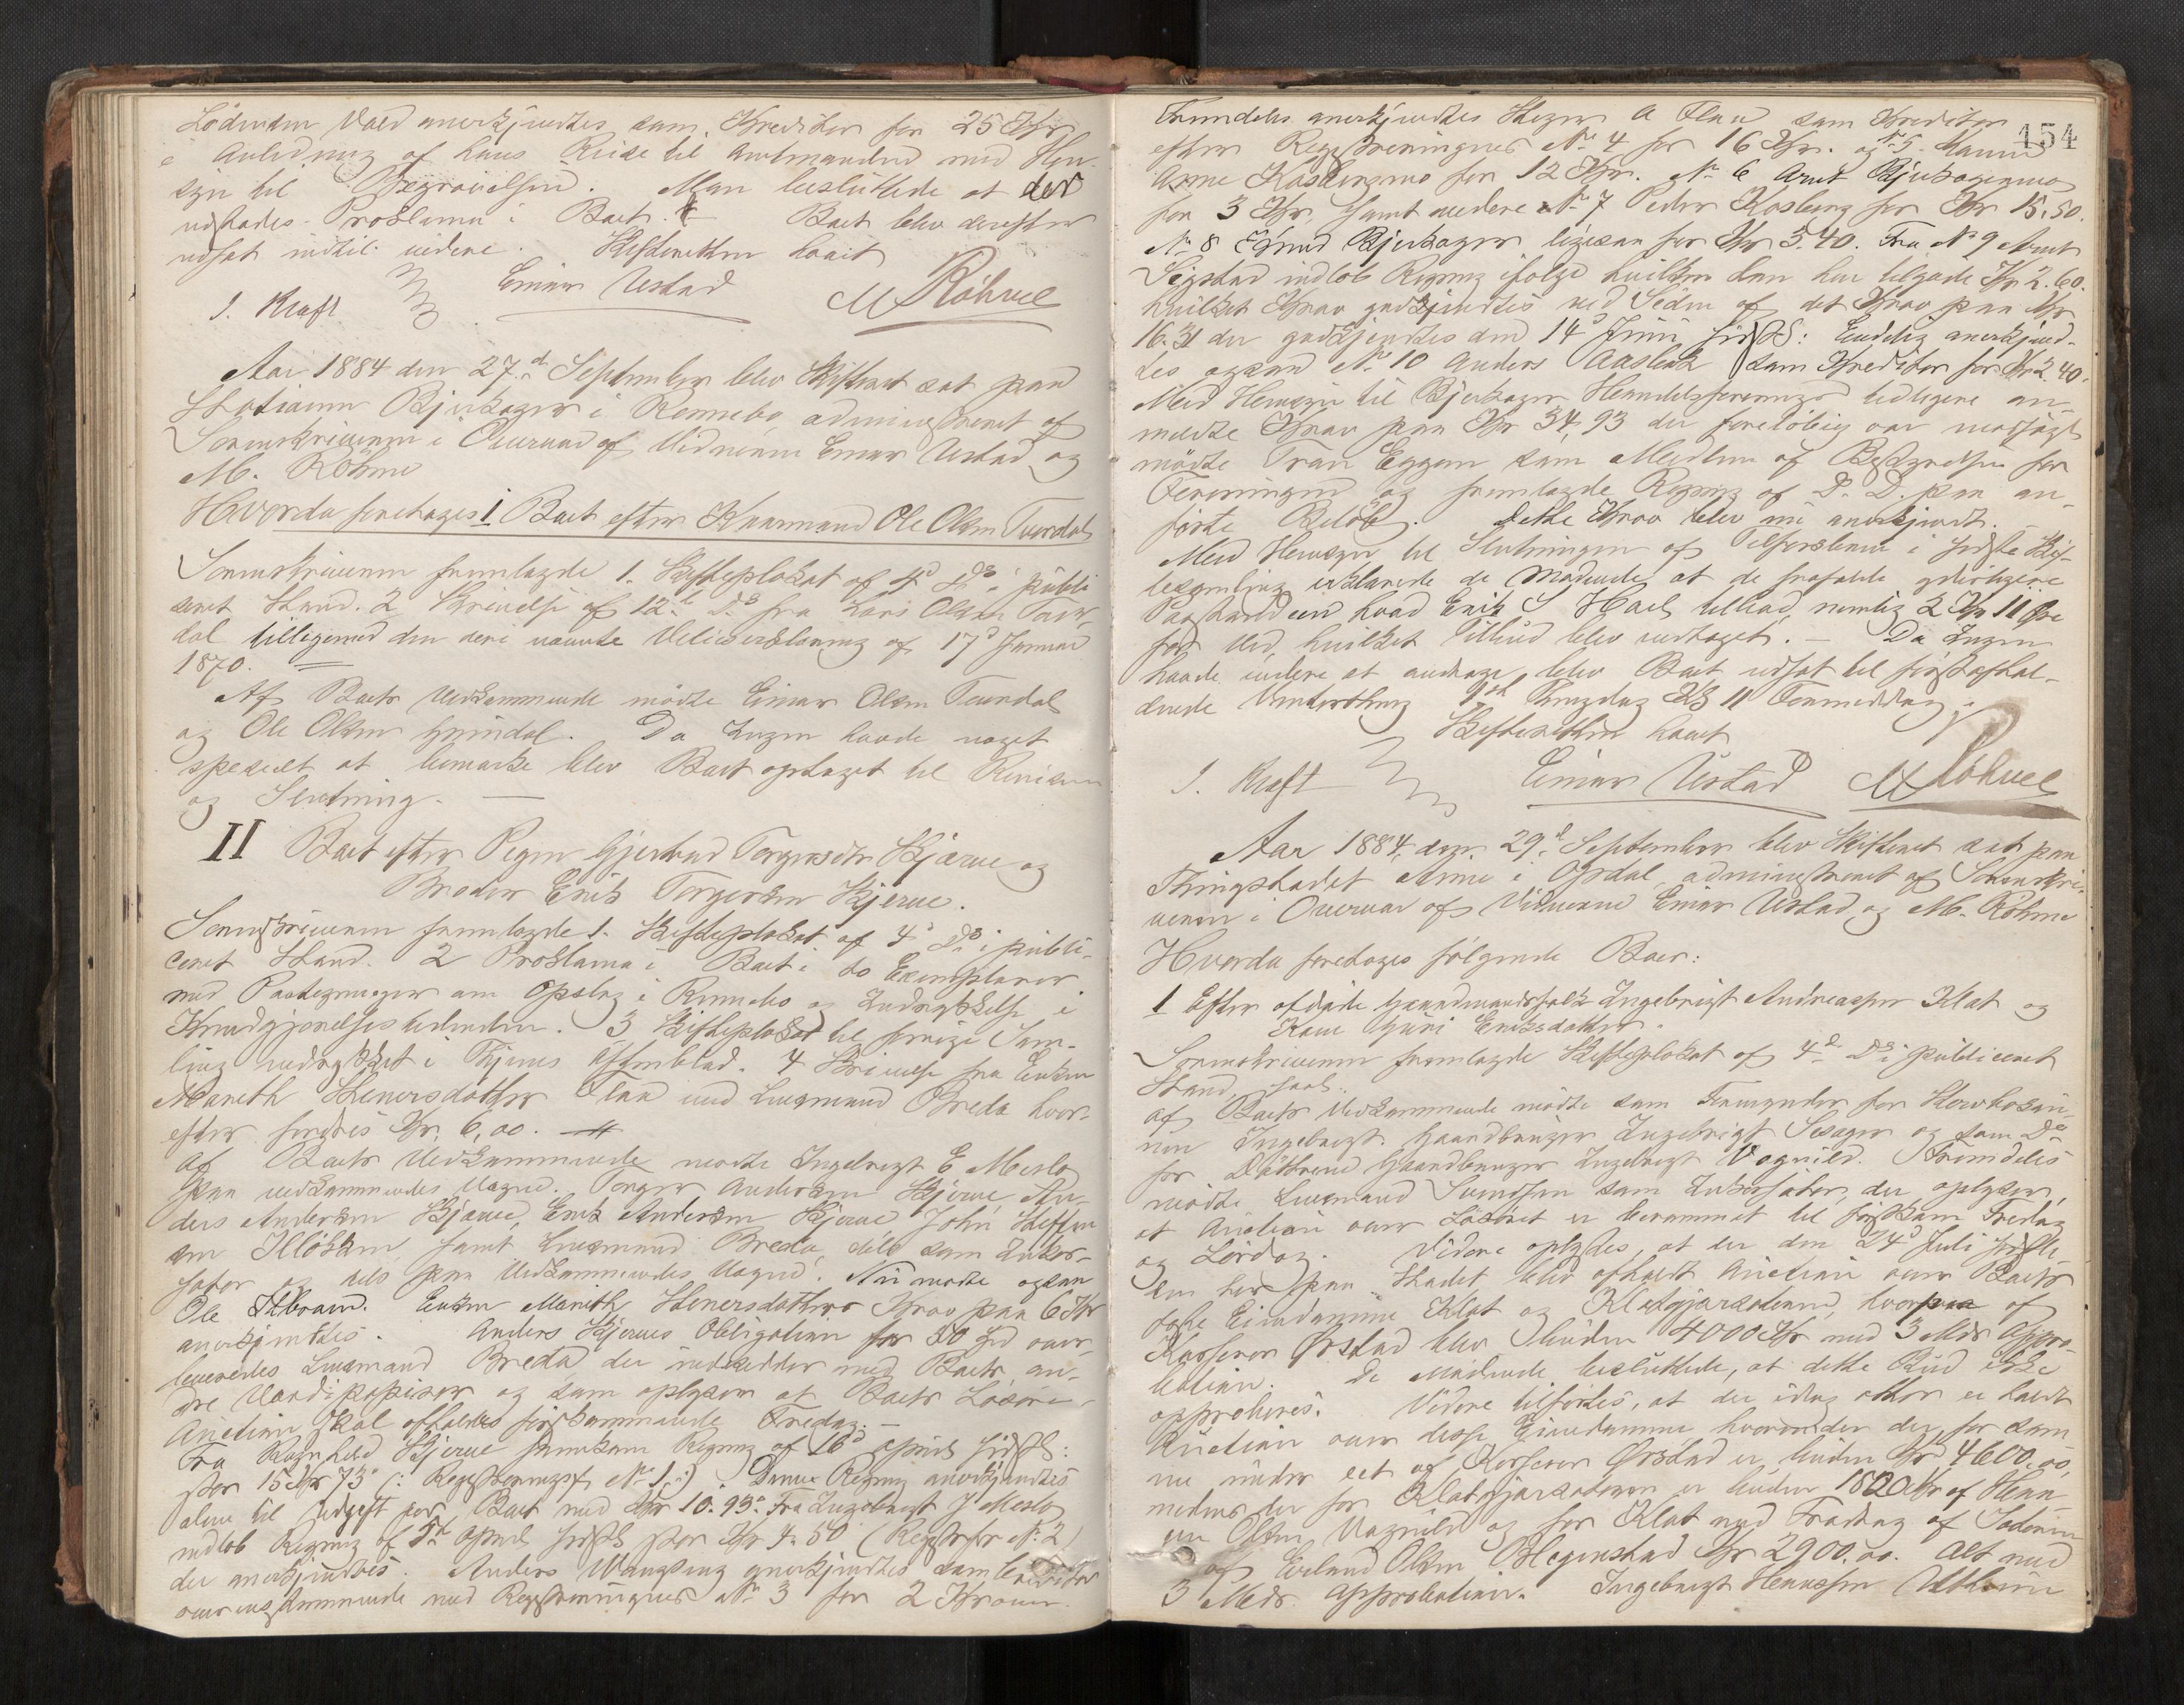 Lödinden Vold anerkjendtes som Kreditor for 25 Kr
i Anledning af hans Reise til Amtmanden med Hen-
syn til Begravelsen. Man besluttede at der
udstades Proklama i Boet. Boet blev derefter
udsat indtil videre. Skifteretten hævet
J. Kraft Einar Ustad M Röhme
Aar 1884 den 27.d September blev Skifteret sat paa
Stationen Bjerkager i Rennebo, administreret af
Sorenskriveren i Overvær af Vidnerne Einar Ustad og
M. Röhme
Hvorda foretoges 1. Boet efter Kaarmand Ole Olsen Tverdal
Sorenskriveren fremlagde 1. Skifteplakat af 4d Ds i publi
ceret Stand. 2 Skrivelse af 12te Ds fra Lars Olsen
dal tilligemed den deri nævnte af 17d Januar
1870.
Af Boets Vedkommende mödte Einar Olsen Tverdal
og Ole Olsen Grindal. Da Ingen havde noget
specielt at bemærke blev Boet optaget til Revision
og Slutning.
II Boet efter Pigen Gjertrud Torgersdtr Skjerve og
Broder Erik Torgersen Skjerve.
Sorenskriveren fremlagde 1. Skifteplakat af 4d Ds i publi-
ceret Stand. 2 Proklama i Boet i to Exemplarer
med Paategninger om Opslag i Rennebo og Indrykkelse i
Kundgjörelsestidenden. 3 Skifteplakat til forrige Sam-
ling indrykket i Thjems Aftenblad. 4 Skrivelse fra Enken
Mareth Stenersdatter Flaa med Lensmand Breda hvor-
efter fordres Kr. 6,00.
Af Boets Vedkommende mödte Ingebrigt E Meslo
paa vedkommendes Vegne. Torger Andersen Skjerve An-
ders Andersen Skjerve, Erik Andersen Skjerve John Steffen
sen Illökken samt Lensmand Breda, dels som Inkas-
sator og dels paa Vedkommendes Vegne. Nu mödte ogsaa
Ole Ilbroen. Enken Mareth Stenersdatters Krav paa 6 Kr
anerkjendtes. Anders Skjerves Obligation for 50 Spd over-
leveredes Lensmand Breda der indsidder med Boets an-
dre Værdipapirer og som oplyser at Boets Lösöre-
Auction skal afholdes förstkommende Fredag.
Fra Ragnhild Skjerve fremkom Regning af 16d April sidstl:
stor 15 Kr 73 (: Registreringsf No 1.:) Denne Regning anerkjendtes
alene til Udgift for Boet med Kr 10.93. Fra Ingebrigt J Meslo
indlöb Regning af 5te April sidstl stor Kr 4.50 (Registrf No 2)
der anerkjendtes. Anders Wangseng anerkjendtes som Creditor
overensstemmende med Registreringens No 3 for 2 Kroner.
454
Fremdeles anerkjendtes Steger A Flaa som Kreditor
efter Registreringens No 4 for 16 Kr. og No 5
Anne Kosbergmo for 12 Kr. No 6 Arnt Bjerkagermo
for 3 Kr. samt videre No 7 Peder Kosberg for Kr 15.50.
No 8 Erind Bjerkager ligesaa for Kr 3.40. Fra No 9 Arnt
Sigstad indlöb Regning ifölge hvilken han har tilgode Kr 2.60.
hvilket Krav godkjendtes ved Siden af det Krav paa Kr
16.31 der godkjendtes den 14d Juni sidstl: Endelig anerkjend-
tes ogsaa No 10 Anders Aasbak som Kreditor for Kr 2.40.
Med Hensyn til Bjerkager Handelsforenings tidligere an-
meldte Krav paa Kr 34,93 der forelöbig var modsagt
mödte Iran Eggen som Medlem af Bestyrelsen for
Foreningen og fremlagde Regning af D. D. paa an-
förte Belöb. Dette Krav blev nu anerkjendt.
Med Hensyn til Slutningen af i sidste Skif-
tesamling erklærede de Mödende at de frafaldt yderligere
Paastand end hvad Erik S Hoel tilböd, nemlig 2 Kr 11 Öre
for Ved, hvilket Tilbud blev vedtaget. Da Ingen
havde videre at andrage blev Boet udsat til förstafhol-
dende Vinterthing 1ste Thingdag Kl 11 Formiddag.
Skifteretten hævet
J. Kraft Einar Ustad M Röhme
Aar 1884, den 29d September blev Skifteret sat paa
Thingstedet Aune i Opdal, administreret af Sorenskri-
veren i Overvær af Vidnerne Einar Ustad, og M. Röhme
Hvorda foretoges fölgende Boer:
1 Efter afdöde Gaardmandsfolk Ingebrigt Andreassen Klat og
Kone Guri Eriksdatter.
Sorenskriveren fremlagde Skifteplakat af 4d Ds i publiceret
Stand saal.
Af Boets Vedkommende mödte som Formynder for
nen Ingebrigt. Gaardbruger Ingebrigt og som Do
for Döttrene Gaardbruger Ingebrigt Vognild. Fremdeles
mödte Lensmand Svendsen som Inkassator, der oplyser,
at Auction over Lösöret er berammet til förstkom Fredag
og Lördag. Videre oplystes, at der den 24d Juli sidstl
en her paa Stedet blev afholdt Auction over Boets
Eiendomme Klat og Klatgjærdet hvorpaa af
Kasserer Örstad blev budden 4000 Kr med 3 Mdr Appro-
bation. De Mödende besluttede, at dette Bud ikke
approberes. Videre tilförtes, at der idag atter er holdt
Auction over disse Eiendomme hvorunder der for dem
nu under eet af Kasserer Örstad er buden Kr 4600.00,
medens der for Klatgjær er buden 1800 Kr af Han-
Olsen Vognild og for Klat med Fradrag af Sæteren
af Erland Olsen Kr 2900.00. Alt med
3 Mdr. Approbation. Ingebrigt Hansen